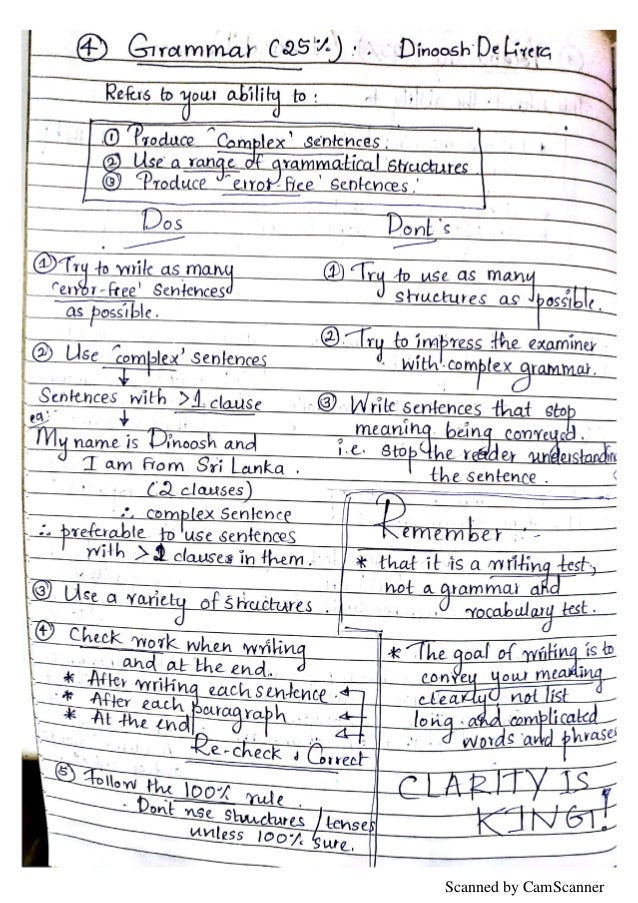 ④ Grammar (25%) :. Dinoosh De Livera
Refers to your ability to :
① Produce 'Complex' sentences.
② Use a range of grammatical structures
③ Produce 'error-free' sentences.
Dos
① Try to write as many
'error-free' sentences
as possible.
② Use 'complex' sentences
↓
Sentences with >1 clause
eg: ↓
My name is Dinoosh and
I am from Sri Lanka.
(2 clauses)
∴ complex sentence
∴ preferable to use sentences
with > 1 clauses in them.
③ Use a variety of structures.
④ Check work when writing
and at the end.
* After writing each sentence
* After each paragraph
* At the end
Re-check & Correct
⑤ Follow the 100% rule.
Dont use structures / tenses
unless 100% sure.
Dont's
① Try to use as many
structures as possible.
② Try to impress the examiner
with complex grammar.
③ Write sentences that stop
meaning being conveyed.
i.e. stop the reader understandin
the sentence.
Remember :-
* that it is a writing test,
not a grammar and
vocabulary test.
* The goal of writing is to
convey your meaning
clearly not list
long and complicated
words and phrases
CLARITY IS
KING!
Scanned by CamScanner